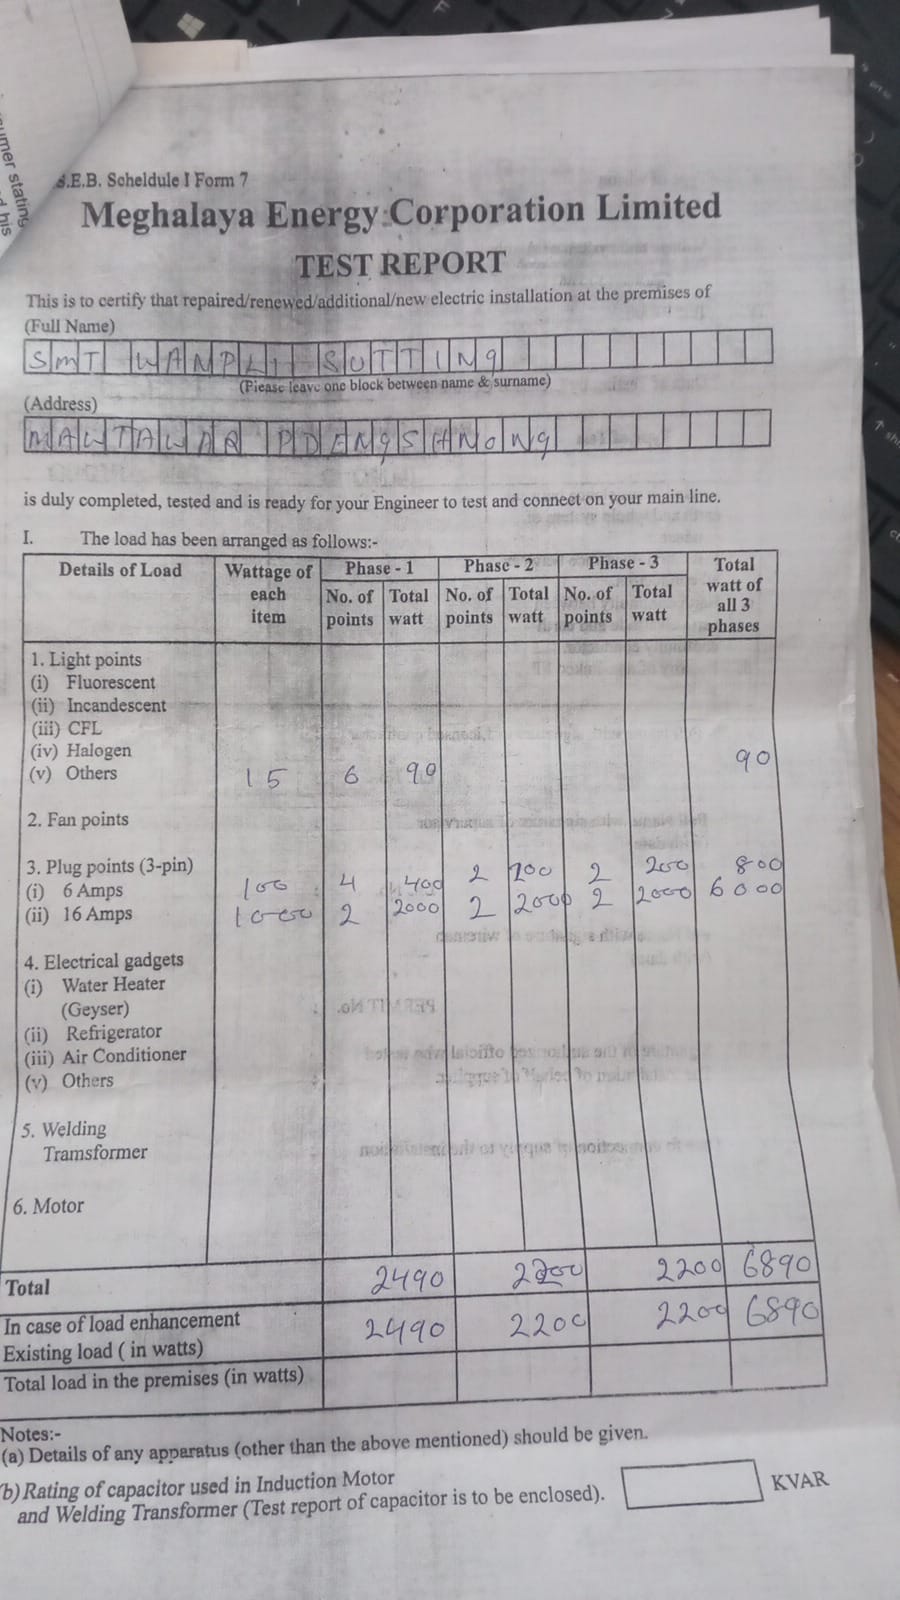 sumer stating
d his
S.E.B. Scheldule I Form 7
Meghalaya Energy Corporation Limited
TEST REPORT
This is to certify that repaired/renewed/additional/new electric installation at the premises of
(Full Name)
SMT WANPLI SUTTING
(Please leave one block between name & surname)
(Address)
MAWTAWAR PDENGSHNONG
is duly completed, tested and is ready for your Engineer to test and connect on your main line.
I. The load has been arranged as follows:-
Details of Load Wattage of each item Phase - 1 Phase - 2 Phase - 3 Total watt of all 3 phases
No. of points Total watt No. of points Total watt No. of points Total watt
1. Light points
(i) Fluorescent
(ii) Incandescent
(iii) CFL
(iv) Halogen
(v) Others 15 6 90 90
2. Fan points
3. Plug points (3-pin)
(i) 6 Amps 100 4 400 2 200 2 200 800
(ii) 16 Amps 1000 2 2000 2 2000 2 2000 6000
4. Electrical gadgets
(i) Water Heater
(Geyser)
(ii) Refrigerator
(iii) Air Conditioner
(v) Others
5. Welding
Tramsformer
6. Motor
Total 2490 2200 2200 6890
In case of load enhancement
Existing load ( in watts) 2490 2200 2200 6890
Total load in the premises (in watts)
Notes:-
(a) Details of any apparatus (other than the above mentioned) should be given.
(b) Rating of capacitor used in Induction Motor
and Welding Transformer (Test report of capacitor is to be enclosed). KVAR